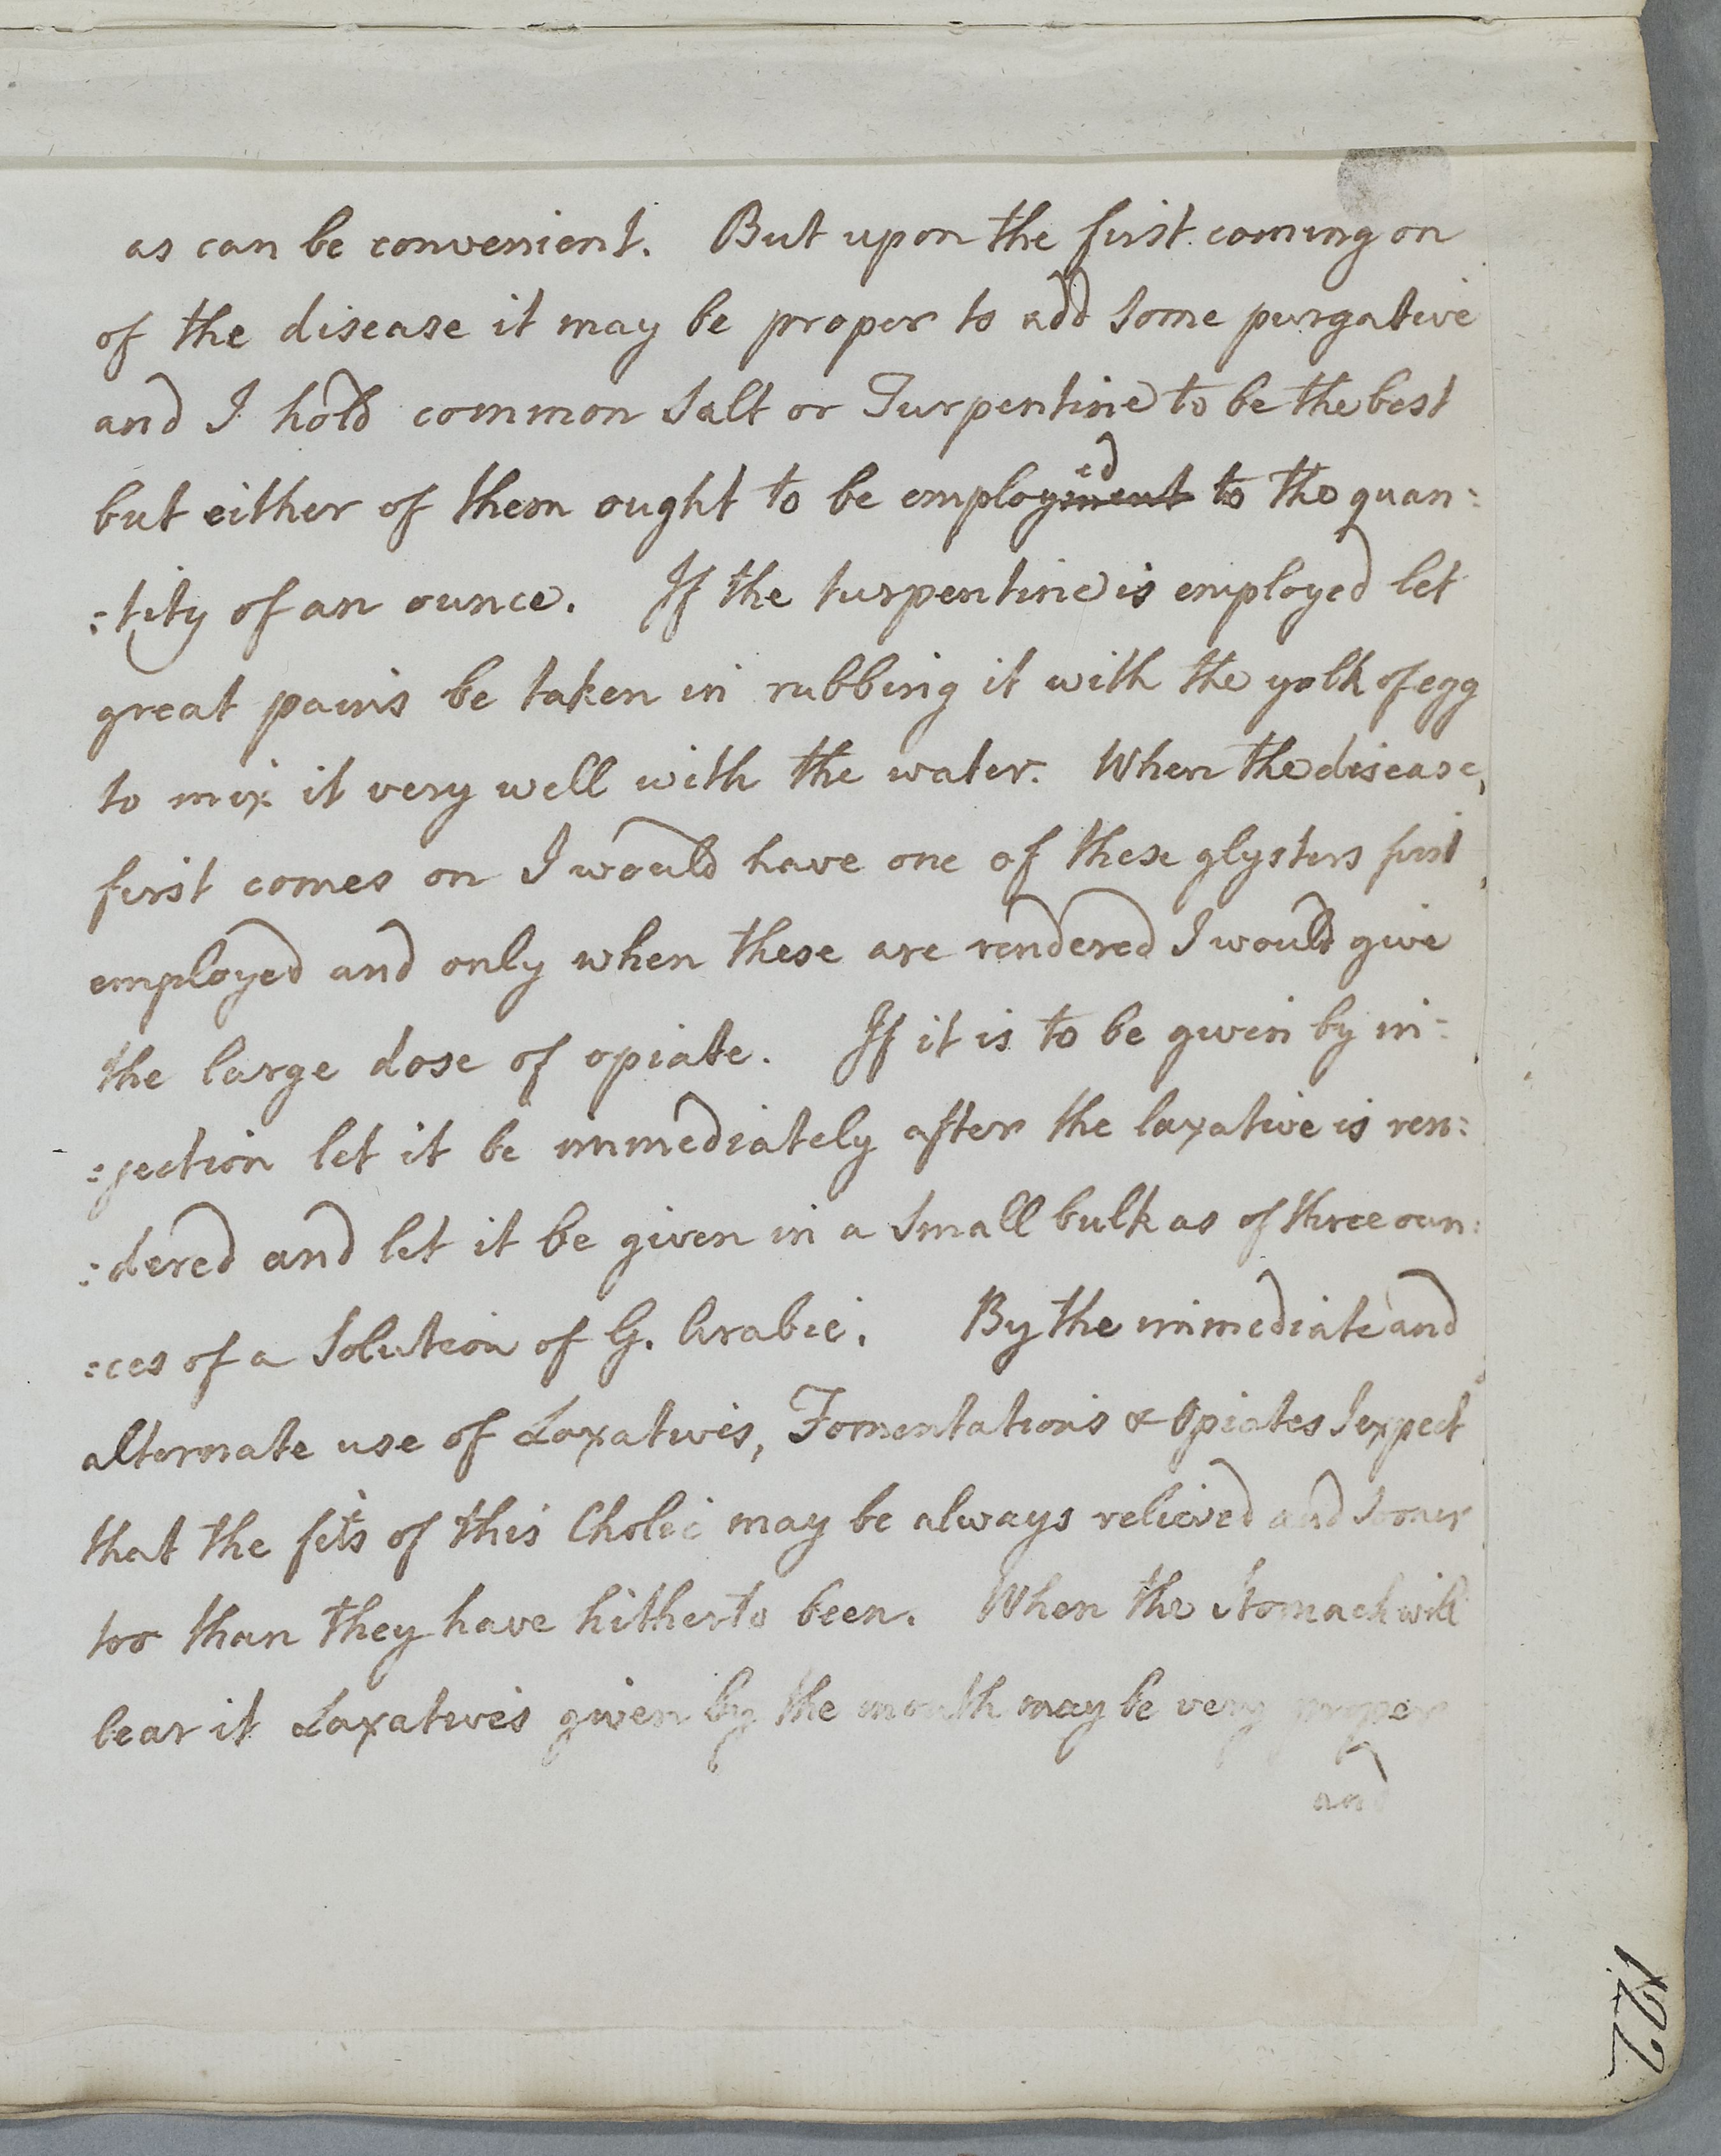 as can be convenient. But upon the first coming on
of the disease it may be proper to add some purgative
and I hold common Salt or Turpentine to be the best
but either of them ought to be employment ed to the quan:
:tity of an ounce. If the turpentine is employed let
great pains be taken in rubbing it with the yolk of egg
to mix it very well with the water. When the disease,
first comes on I would have one of these glysters first
employed and only when these are rendered I would give
the large dose of opiate. If it is to be given by in:
:jection let it be immediately after the laxative is ren:
:dered and let it be given in a small bulk as of three oun:
:ces of a Solution of G. Arabic. By the immediate and
alternate use of Laxatives, Fomentations & Opiates I expect
that the fits of this Cholic may be always relieved and sooner
too than they have hitherto been. When the Stomach will
bear it Laxatives given by the mouth may be very proper
and
122